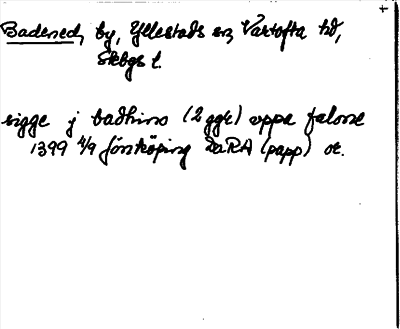 Badened, by, Yllestads sn, Vartofta hd,
Skbgs l.
sigge j badhino (2 ggr) oppa falone
1399 4/9 Jönköping DaRA (papp) or.